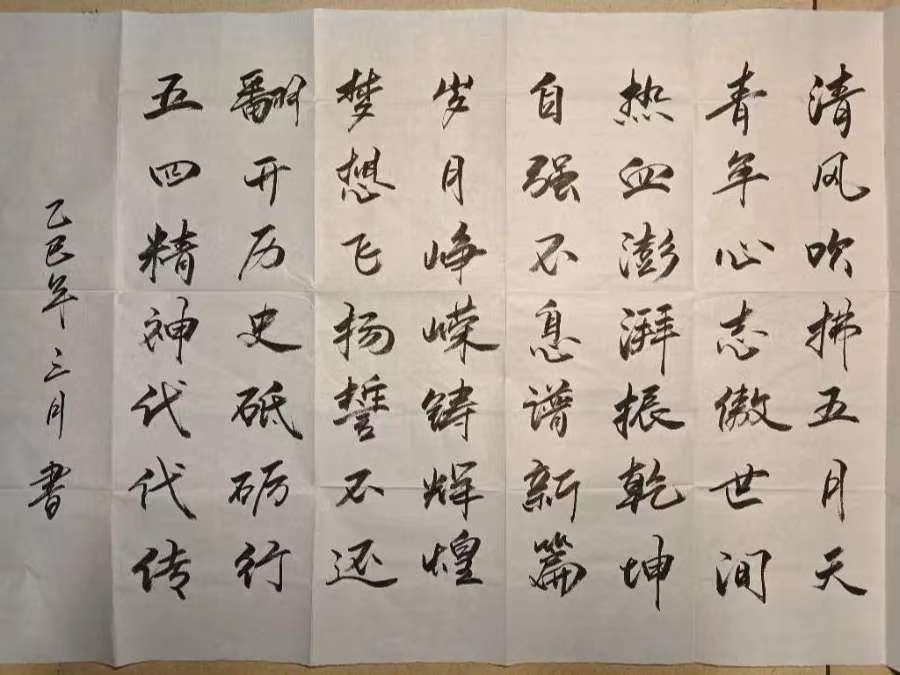 清风吹拂五月天
青年心志傲世间
热血澎湃振乾坤
自强不息谱新篇
岁月峥嵘铸辉煌
梦想飞扬誓不还
翻开历史砥砺行
五四精神代代传
乙巳年三月書